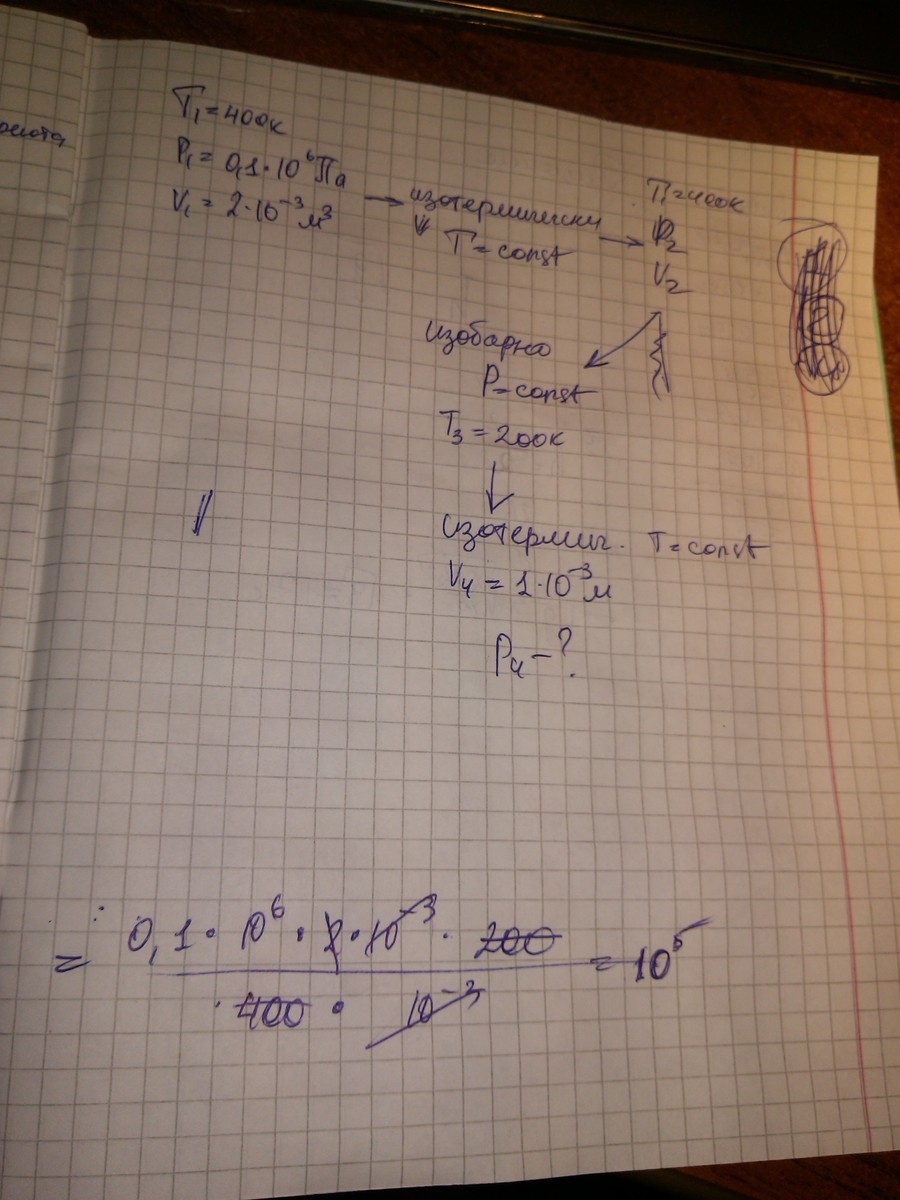 T₁ = 400к
P₁ = 0,1·10⁶ Па
V₁ = 2·10⁻³ м³
→ изотермически →
T = const
T₁ = 400к
P₂
V₂
изобарно
P = const
T₃ = 200к
изотермич. T = const
V₄ = 1·10⁻³ м
P₄ - ?
= 0,1 · 10⁶ · 2 · 10⁻³ · 200 = 10⁵
400 · 10⁻³